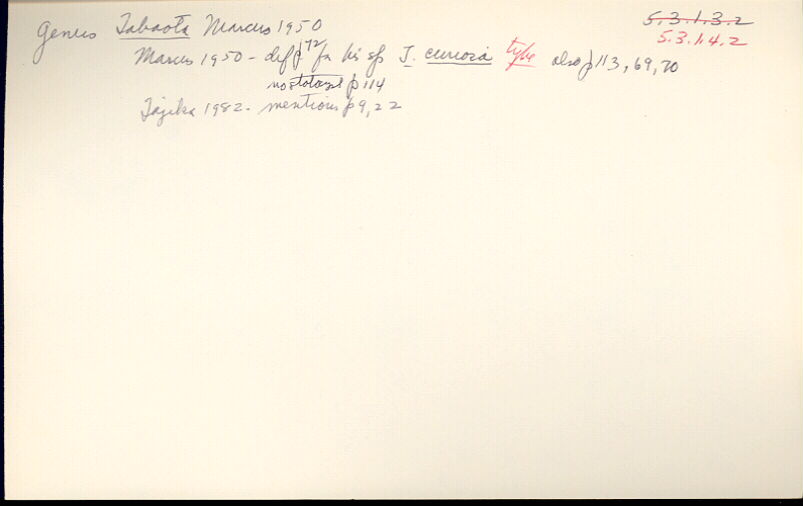 Genus Tabaota Marcus 1950
5.3.1.3.2
5.3.1.4.2
Marcus 1950 - def p 72 for his sp T. curiosa type also p 113, 69, 70
no statocyst p 114
Tajika 1982 - mentions p 9, 22